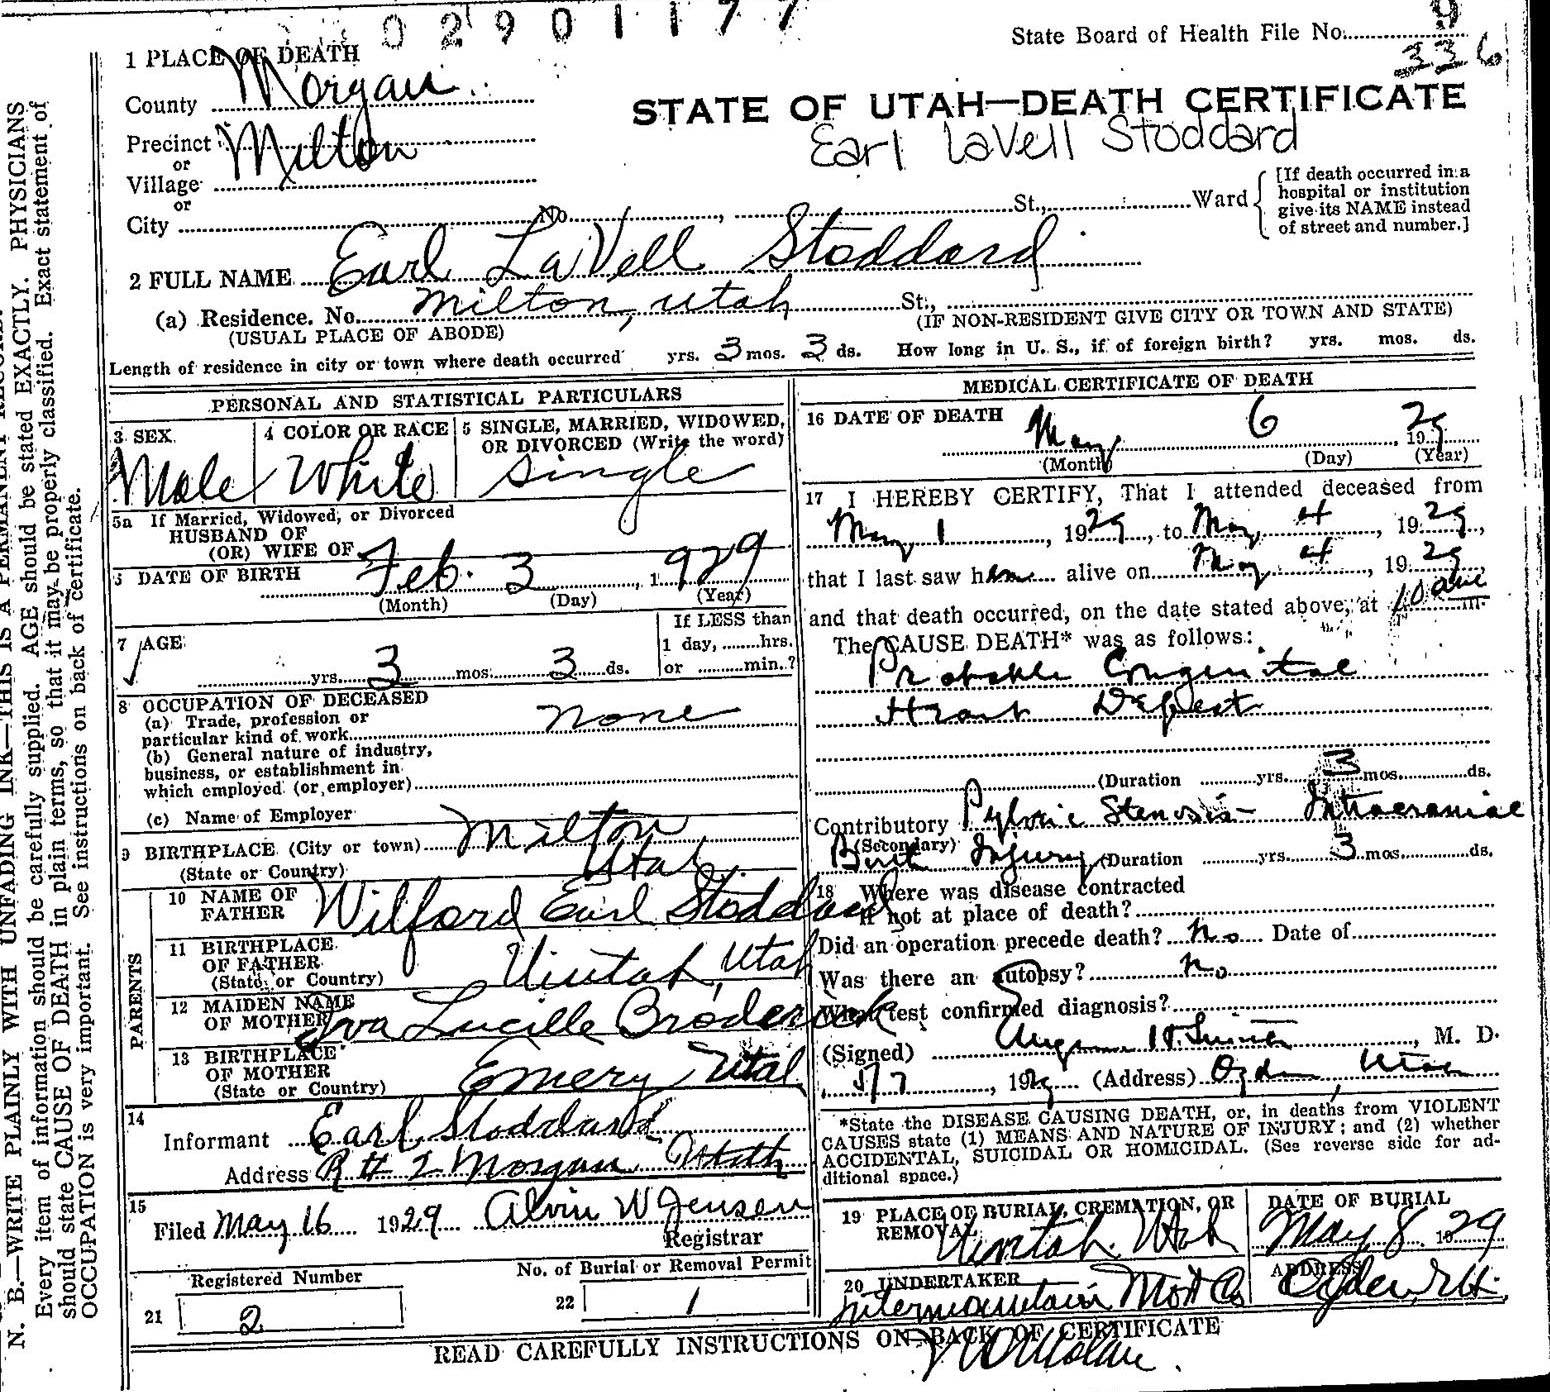 02901177
State Board of Health File No. 9
336
1 PLACE OF DEATH
County Morgan
Precinct Milton
or
Village
or
City No. , St., Ward
[If death occurred in a
hospital or institution
give its NAME instead
of street and number.]
STATE OF UTAH—DEATH CERTIFICATE
Earl LaVell Stoddard
2 FULL NAME Earl LaVell Stoddard
(a) Residence. No. Milton, Utah St.,
(USUAL PLACE OF ABODE) (IF NON-RESIDENT GIVE CITY OR TOWN AND STATE)
Length of residence in city or town where death occurred yrs. 3 mos. 3 ds. How long in U. S., if of foreign birth? yrs. mos. ds.
PERSONAL AND STATISTICAL PARTICULARS
3 SEX
Male
4 COLOR OR RACE
White
5 SINGLE, MARRIED, WIDOWED,
OR DIVORCED (Write the word)
Single
5a If Married, Widowed, or Divorced
HUSBAND OF
(OR) WIFE OF
6 DATE OF BIRTH Feb. 3, 1929
(Month) (Day) (Year)
7 AGE
yrs. 3 mos. 3 ds.
If LESS than
1 day, hrs.
or min.?
8 OCCUPATION OF DECEASED
(a) Trade, profession or
particular kind of work none
(b) General nature of industry,
business, or establishment in
which employed (or employer)
(c) Name of Employer
9 BIRTHPLACE (City or town) Milton
(State or Country) Utah.
PARENTS
10 NAME OF
FATHER Wilford Earl Stoddard
11 BIRTHPLACE
OF FATHER
(State or Country) Uintah, Utah
12 MAIDEN NAME
OF MOTHER Iva Lucille Broderick
13 BIRTHPLACE
OF MOTHER
(State or Country) Emery Utah
14
Informant Earl Stoddard
Address R # 2 Morgan Utah
15
Filed May 16 1929 Alvin W Jensen
Registrar
Registered Number
21 2
No. of Burial or Removal Permit
22 1
MEDICAL CERTIFICATE OF DEATH
16 DATE OF DEATH
May 6, 1929
(Month) (Day) (Year)
17 I HEREBY CERTIFY, That I attended deceased from
May 1, 1929, to May 4, 1929,
that I last saw him alive on May 4, 1929,
and that death occurred, on the date stated above, at 10 am m.
The CAUSE DEATH* was as follows:
Probable Congenital
Heart Defect
(Duration yrs. 3 mos. ds.
Contributory Pyloric Stenosis - Intracranial
(Secondary)
Birth Injury (Duration yrs. 3 mos. ds.
18 Where was disease contracted
if not at place of death?
Did an operation precede death? No Date of
Was there an autopsy? No
What test confirmed diagnosis?
(Signed) H. Smith, M. D.
5/7, 1929 (Address) Ogden, Utah
*State the DISEASE CAUSING DEATH, or, in deaths from VIOLENT
CAUSES state (1) MEANS AND NATURE OF INJURY; and (2) whether
ACCIDENTAL, SUICIDAL OR HOMICIDAL. (See reverse side for ad-
ditional space.)
19 PLACE OF BURIAL, CREMATION, OR
REMOVAL
Uintah Utah
DATE OF BURIAL
May 8 1929
20 UNDERTAKER
Intermountain Mort Co
ADDRESS
Ogden, Ut.
READ CAREFULLY INSTRUCTIONS ON BACK OF CERTIFICATE
N. B.—WRITE PLAINLY WITH UNFADING INK—THIS IS A PERMANENT RECORD.
Every item of information should be carefully supplied. AGE should be stated EXACTLY. PHYSICIANS
should state CAUSE OF DEATH in plain terms, so that it may be properly classified. Exact statement of
OCCUPATION is very important. See instructions on back of certificate.